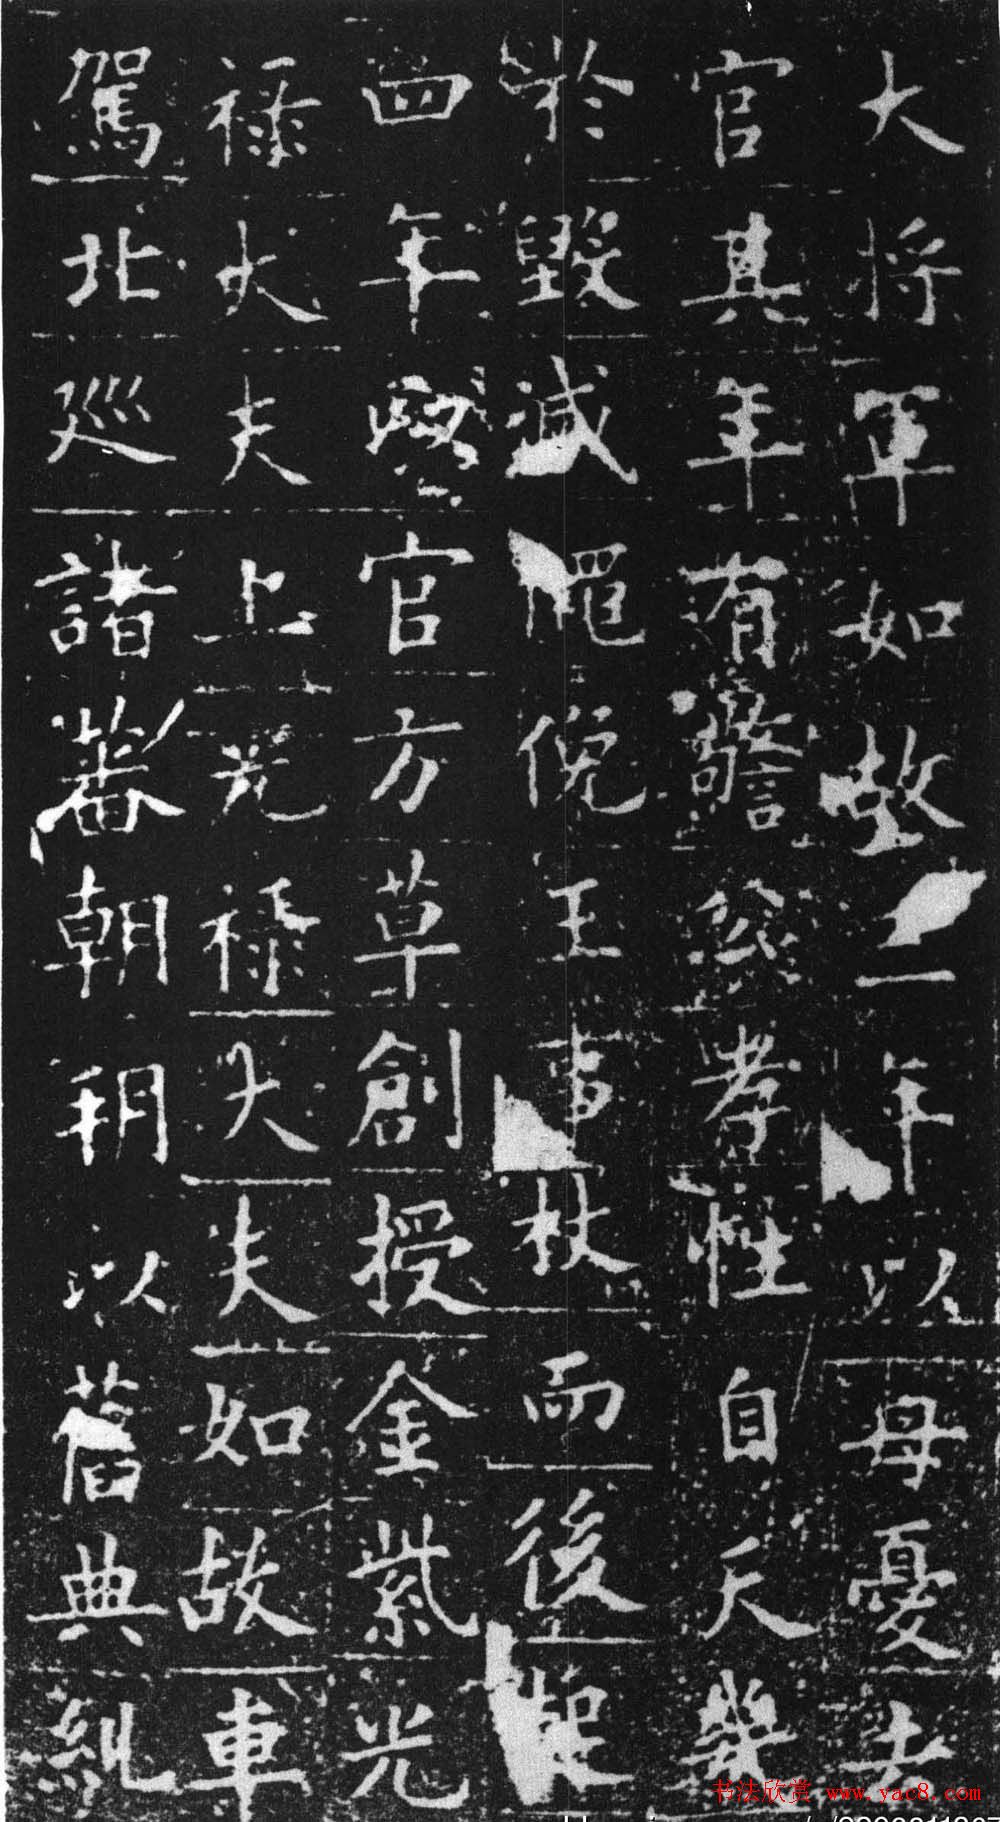 大将軍如故二年以母憂去
官其年有警公孝性自天幾
於毀滅僶俛王事杖而後起
四年官方草創授金紫光
祿大夫上光祿大夫如故車
駕北巡諸蕃朝以舊典糺
书法欣赏 www.yac8.com